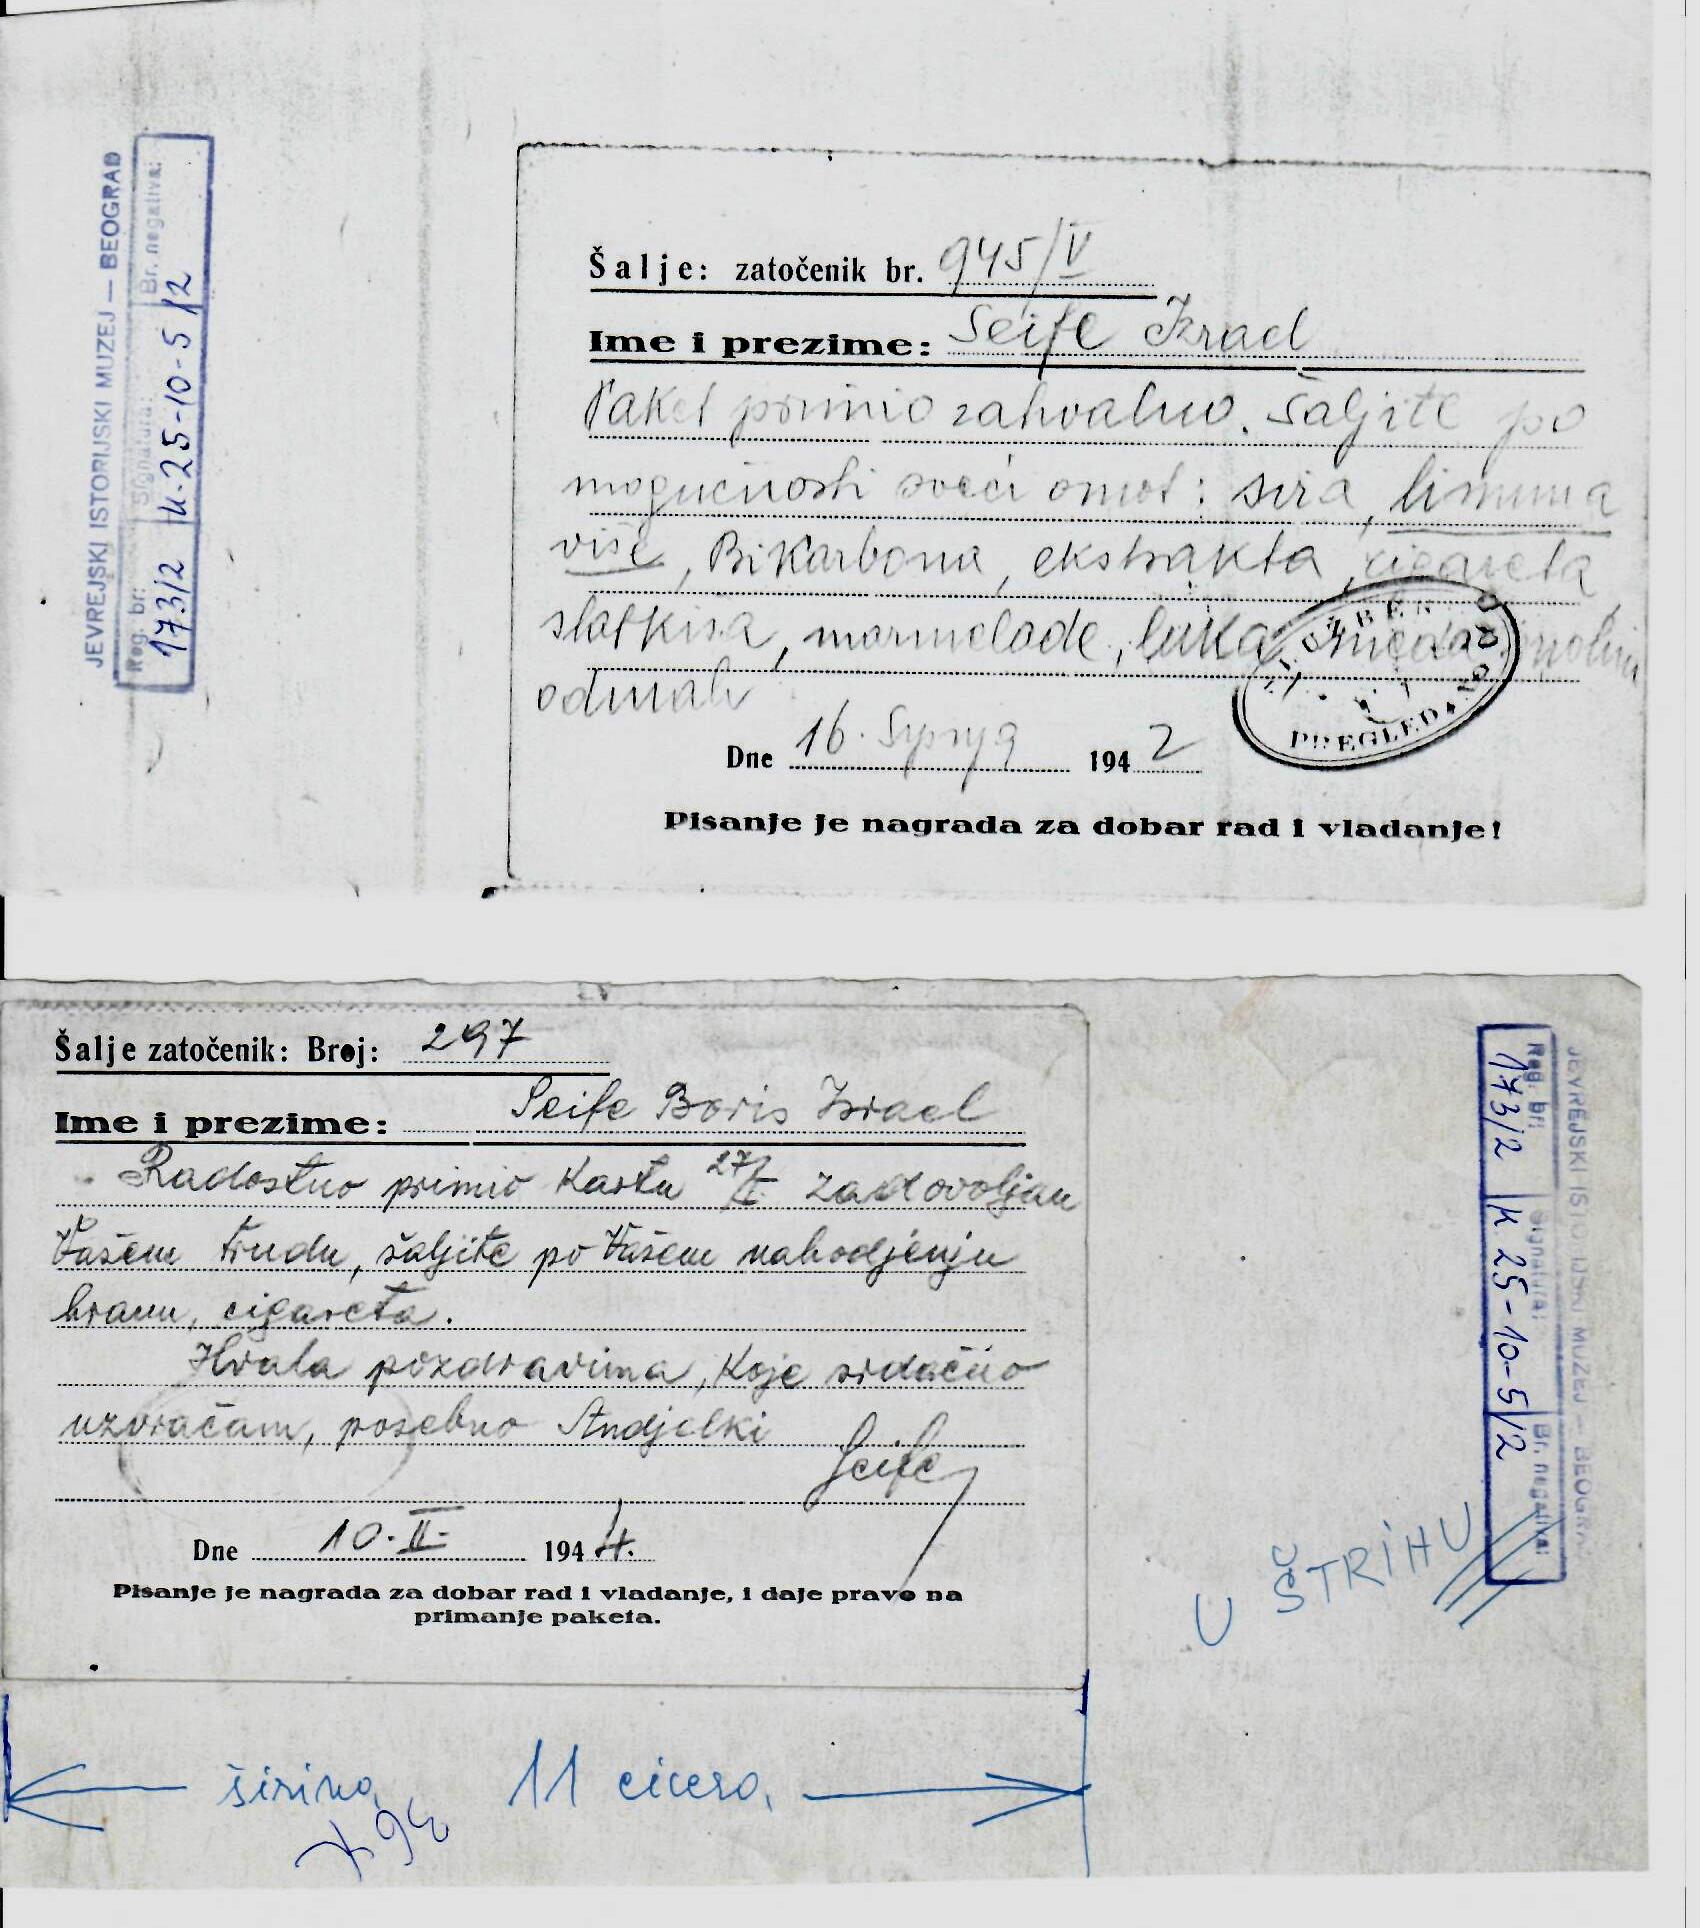 JEVREJSKI ISTORIJSKI MUZEJ — BEOGRAD
Reg. br: Signatura: Br. negativa:
173/2 K-25-10-5/2
Šalje: zatočenik br. 945/V
Ime i prezime: Seife Izrael
Paket primio zahvalno. Šaljite po
mogućnosti sveći omot: sira, limuna
više, Bikarbona, ekstrakta, cigareta
slatkiša, marmelade, luka, meda, molim
odmah
PREGLEDANO
Dne 16. Srpnja 1942
Pisanje je nagrada za dobar rad i vladanje!
Šalje zatočenik: Broj: 297
Ime i prezime: Seife Boris Izrael
Radostno primio kartu 27/I. zadovoljan
Vašem trudu, šaljite po Vašem nahodjenju
hranu, cigareta.
Hvala pozdravima, koje srdačno
uzvraćam, posebno Andjelki
Seife
Dne 10.II. 1944.
Pisanje je nagrada za dobar rad i vladanje, i daje pravo na
primanje paketa.
JEVREJSKI ISTORIJSKI MUZEJ — BEOGRAD
Reg. br: Signatura: Br. negativa:
173/2 K 25-10-5/2
U ŠTRIHU
širina 11 cicera